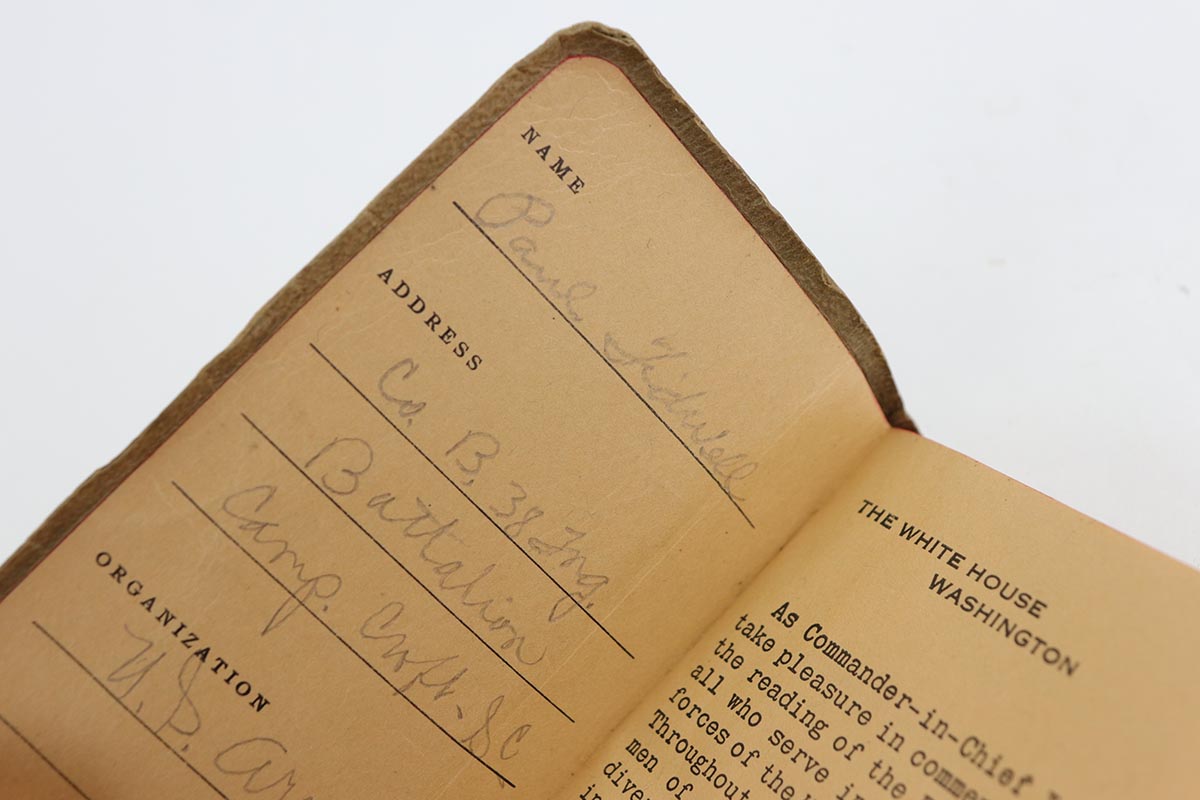 NAME
Paul Tidwell
ADDRESS
Co. B, 38 Tng.
Battalion
Camp. Croft. SC
ORGANIZATION
U.S.
THE WHITE HOUSE
WASHINGTON
As Commander-in-Chief
take pleasure in
the reading of the
all who serve
forces of the
Throughout
men of